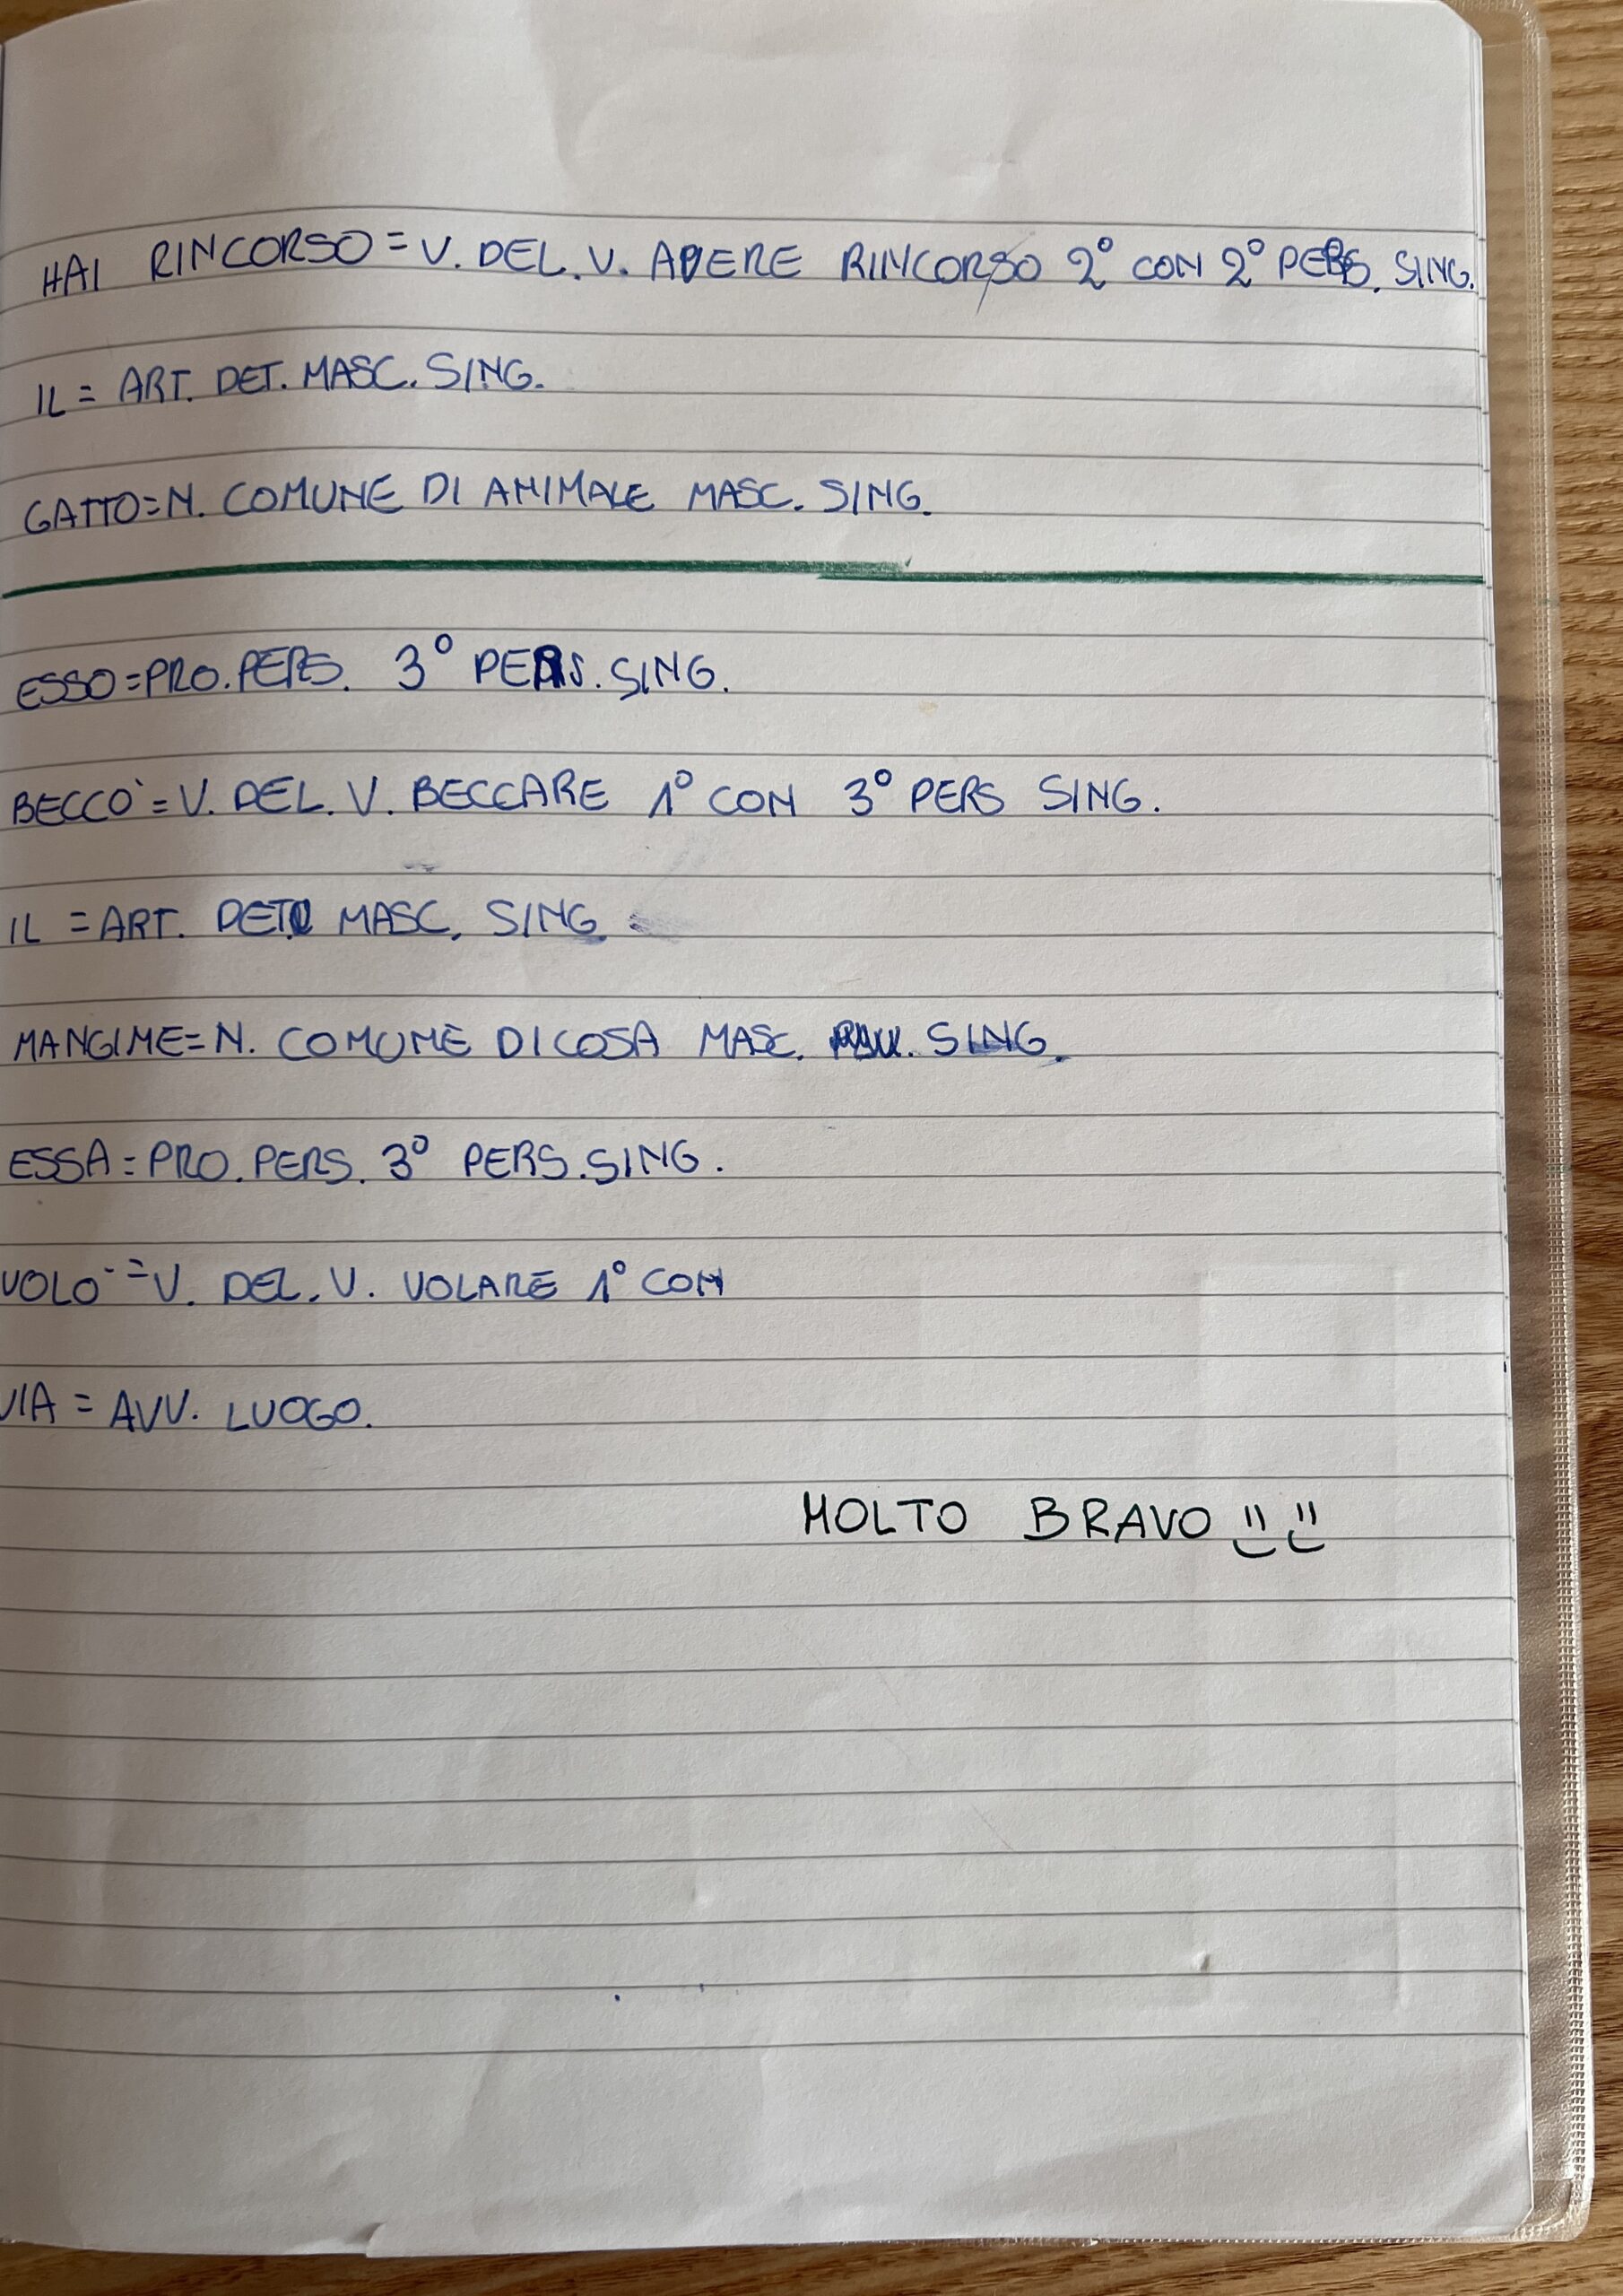 HAI RINCORSO = V. DEL. V. AVERE RINCORSO 2° CON 2° PERS. SING.
IL = ART. DET. MASC. SING.
GATTO = N. COMUNE DI ANIMALE MASC. SING.
ESSO = PRO. PERS. 3° PERS. SING.
BECCÒ = V. DEL. V. BECCARE 1° CON 3° PERS SING.
IL = ART. DET. MASC. SING.
MANGIME = N. COMUNE DI COSA MASC. SING.
ESSA = PRO. PERS. 3° PERS. SING.
VOLÒ = V. DEL. V. VOLARE 1° CON
VIA = AVV. LUOGO.
MOLTO BRAVO